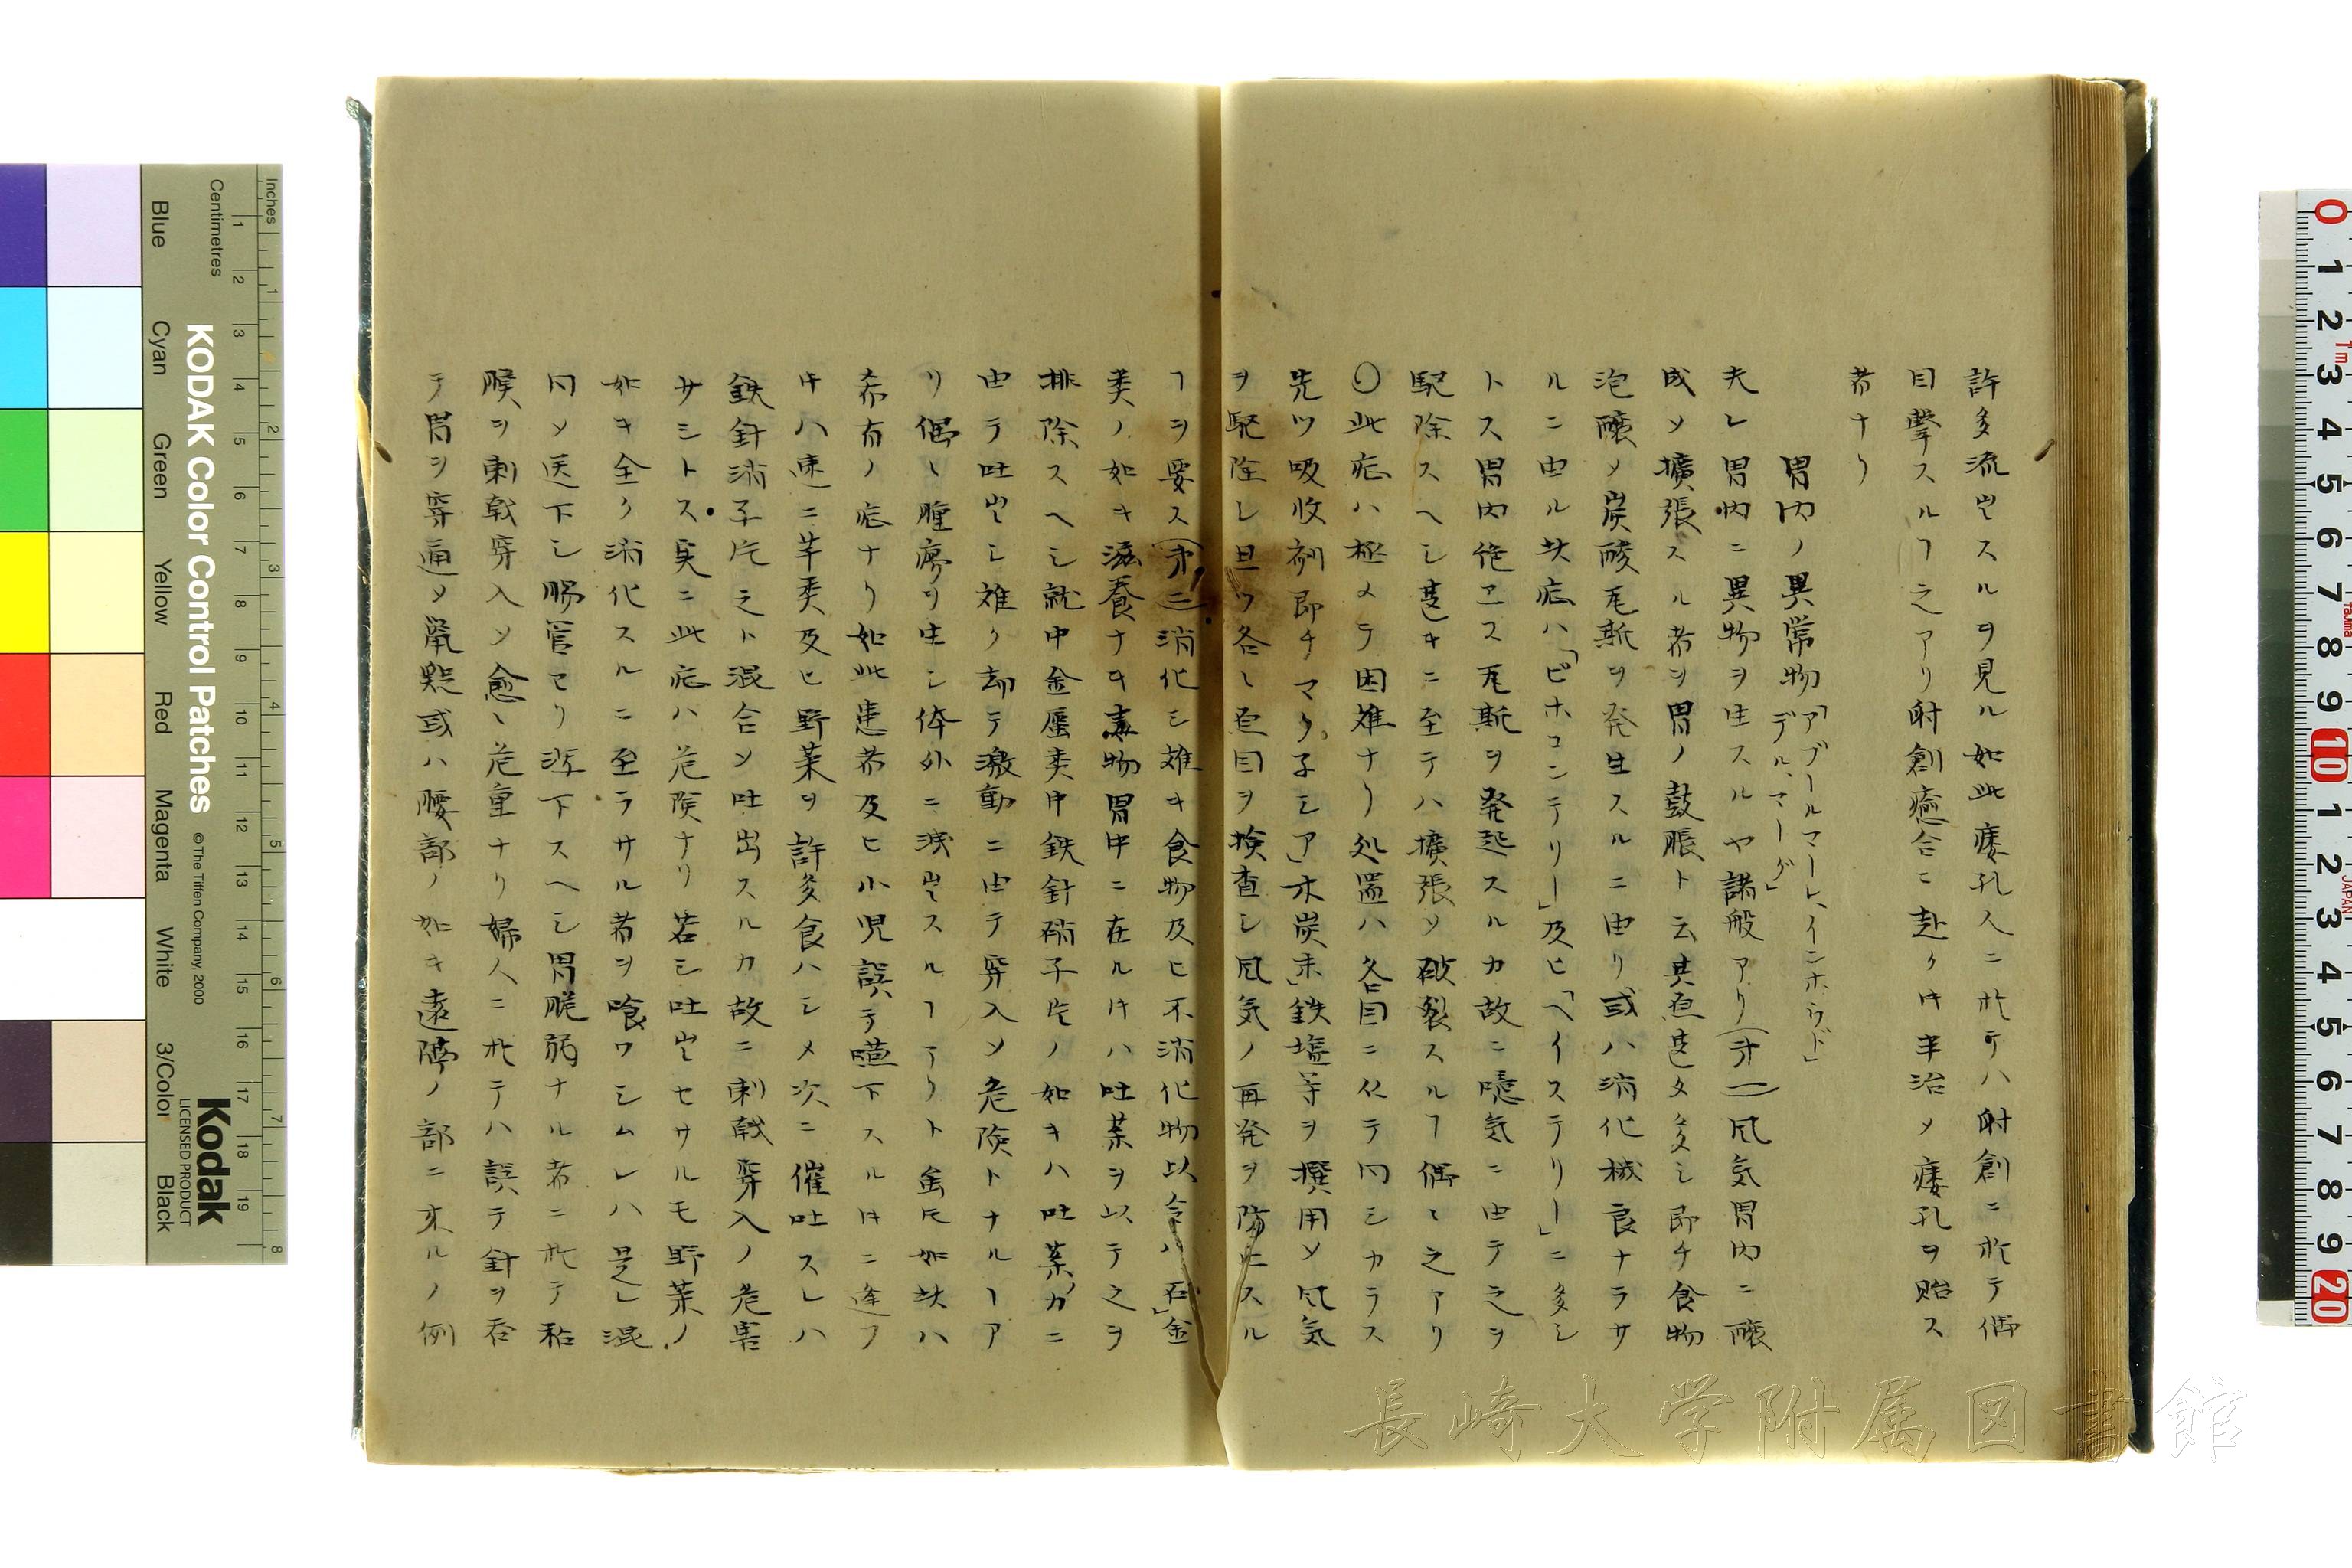 許多流出スルヲ見ル如此瘻孔人ニ於テハ射創ニ於テ偶
目撃スルヿ之アリ射創癒合ニ赴クキ半治メ瘻孔ヲ貽ス
者ナリ
胃内ノ異常物「アブールマーレ、インホウド」
デル、マーグ」
夫レ胃内ニ異物ヲ生スルヤ諸般アリ(第一)風気胃内ニ醸
成メ擴張スル者ヲ胃ノ鼓脹ト云其患甚タ多シ即チ食物
泡醸メ炭酸瓦斯ヲ発生スルニ由リ或ハ消化機良ナラサ
ルニ由ル此症ハ「ビホコンテリー」及ヒ「ヘイステリー」ニ多シ
トス胃内絶エス瓦斯ヲ発起スルカ故ニ噫気ニ由テ之ヲ
駆除スヘシ甚キニ至テハ擴張メ破裂スルヿ偶々之アリ
〇此症ハ極メテ困難ナリ処置ハ各目ニ仍テ同シカラス
先ツ吸收剤即チマク子シア」木炭末」鉄塩等ヲ撰用メ風気
ヲ駆除シ且ツ各々原因ヲ検査シ風気ノ再発ヲ防止スル
ヿヲ要ス(第二)消化シ難キ食物及ヒ不消化物以令ハ石」金
類ノ如キ滋養ナキ毒物胃中ニ在ルキハ吐薬ヲ以テ之ヲ
排除スヘシ就中金属類中鉄針硝子片ノ如キハ吐薬ノカニ
由テ吐出シ難ク却テ激動ニ由テ穿入メ危険トナルヿア
リ偶々腫瘍ヲ生シ体外ニ洩出スルヿアリト雖圧如此ハ
希有ノ症ナリ如此患者及ヒ小児誤テ嚥下スルキニ逢フ
キハ速ニ芋類及ヒ野菜ヲ許多食ハシメ次ニ催吐スレハ
鉄針硝子片之ト混合メ吐出スルカ故ニ刺戟穿入ノ危害
サシトス実ニ此症ハ危険ナリ若シ吐出セサルモ野菜ノ
如キ全ク消化スルニ至ラサル者ヲ喰ワシムレハ是レ混
同メ送下シ腸管ヨリ泄下スヘシ胃脆弱ナル者ニ於テ粘
膜ヲ刺戟穿入メ愈々危重ナリ婦人ニ於テハ誤テ針ヲ呑
テ胃ヲ穿通メ鼠蹊或ハ腰部ノ如キ遠隔ノ部ニ來ルノ例
KODAK Color Control Patches
© The Tiffen Company, 2000
Kodak
LICENSED PRODUCT
Inches
Centimetres
Blue Cyan Green Yellow Red Magenta White 3/Color Black
長崎大学附属図書館
JAPAN